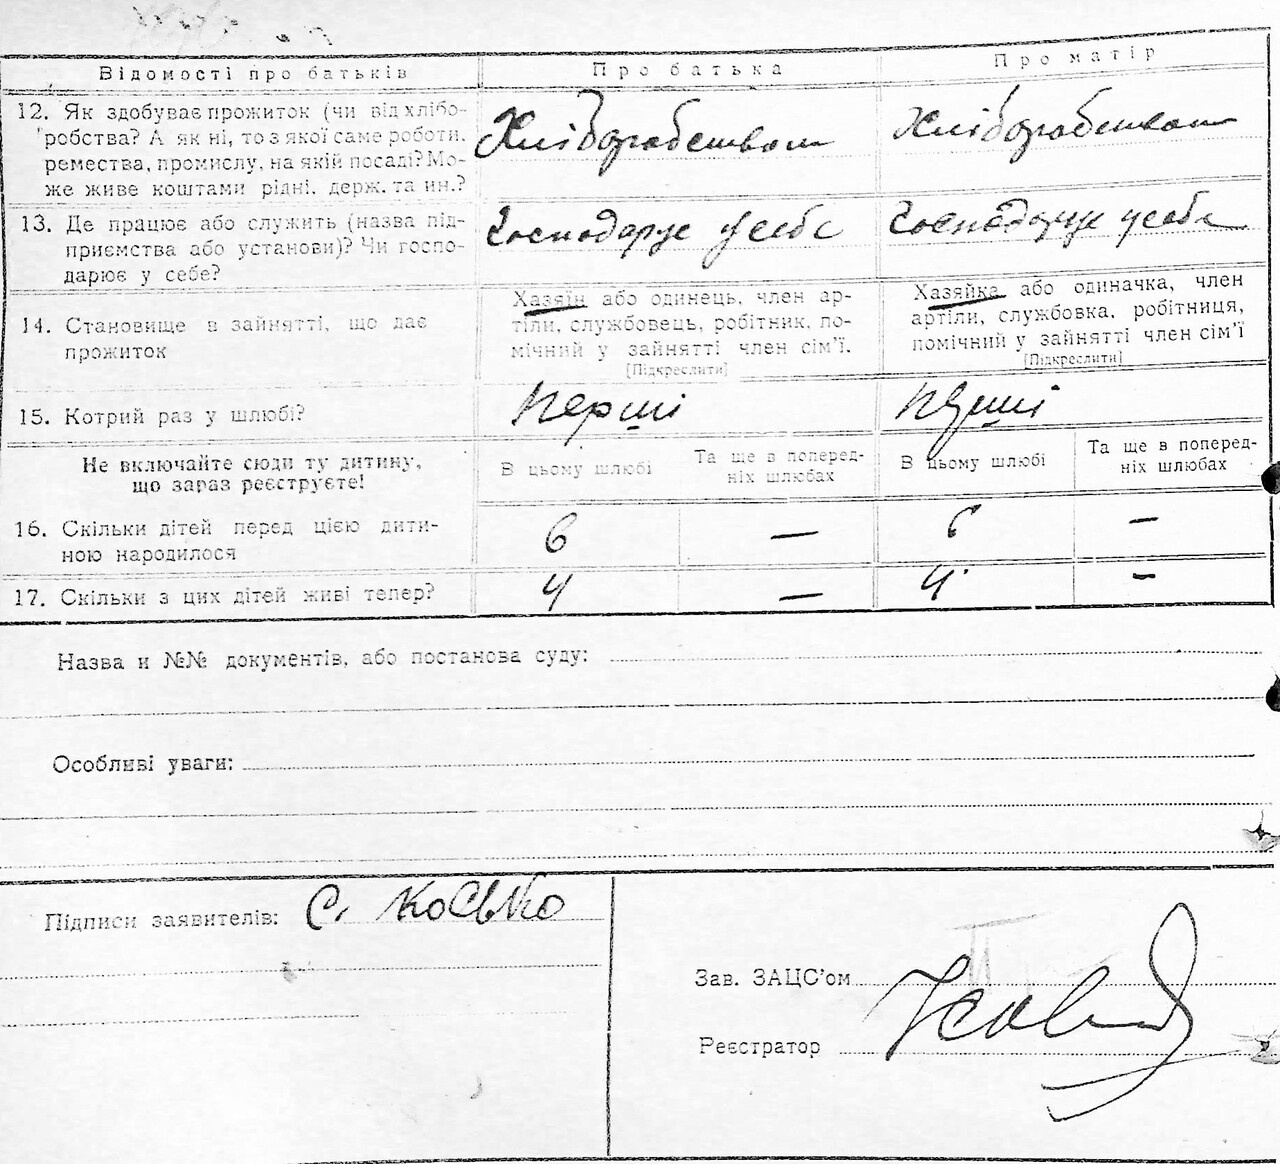 Відомості про батьків
Про батька
Про матір
12. Як здобуває прожиток (чи від хлібо-
робства? А як ні, то з якої саме роботи,
ремества, промислу, на якій посаді? Мо-
же живе коштами рідні, держ. та ин.?
Хліборобством
Хліборобством
13. Де працює або служить (назва під-
приємства або установи)? Чи госпо-
дарює у себе?
Господарує у себе
Господарує у себе
14. Становище в зайнятті, що дає
прожиток
Хазяїн або одинець, член ар-
тіли, службовець, робітник, по-
мічний у зайнятті член сім'ї.
[Підкреслити]
Хазяйка або одиначка, член
артіли, службовка, робітниця,
помічний у зайнятті член сім'ї
[Підкреслити]
15. Котрий раз у шлюбі?
Перші
Перші
Не включайте сюди ту дитину,
що зараз реєструєте!
В цьому шлюбі
Та ще в поперед-
ніх шлюбах
В цьому шлюбі
Та ще в поперед-
ніх шлюбах
16. Скільки дітей перед цією дити-
ною народилося
6 — 6 —
17. Скільки з цих дітей живі тепер?
4 — 4 —
Назва и №№ документів, або постанова суду:
Особливі уваги:
Підписи заявителів: С. Косько
Зав. ЗАЦС'ом
Реєстратор